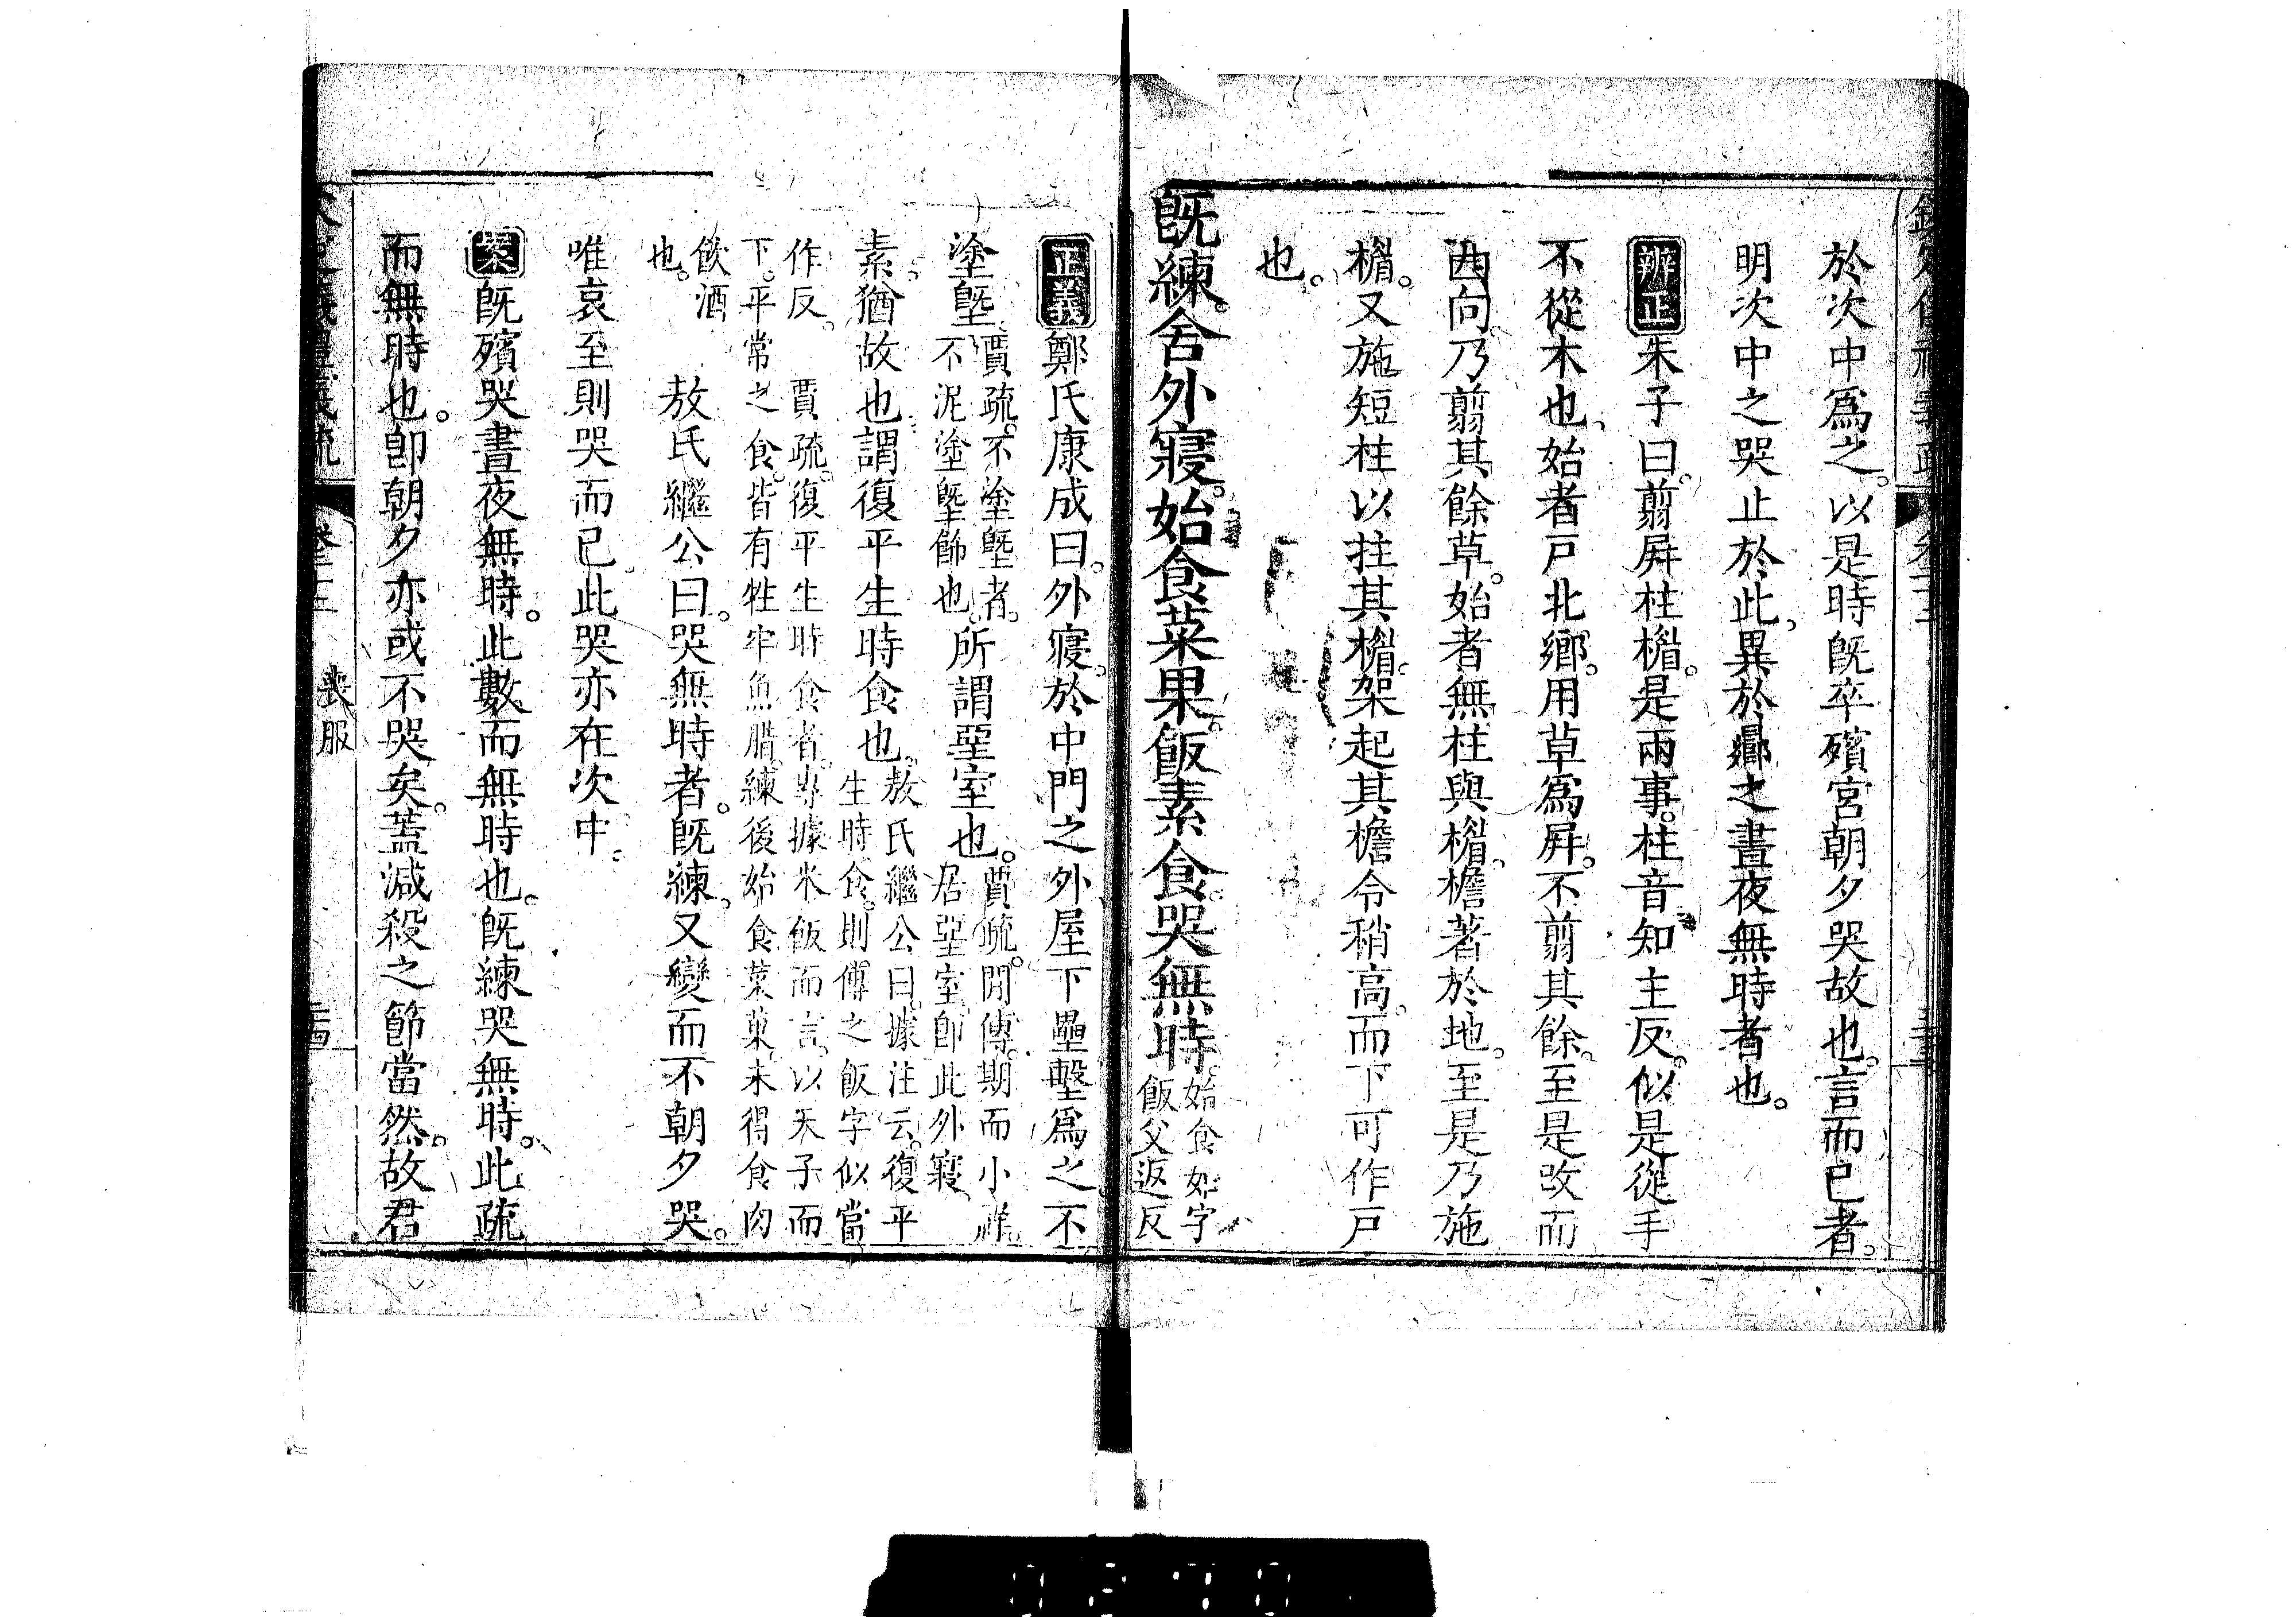 於次中爲之。以是時旣卒殯宮朝夕哭故也。言而已者。
明次中之哭止於此。異於曏之晝夜無時者也。
辨正朱子曰。翦屛柱楣。是兩事。柱音知主反。似是從手
不從木也。始者戶北鄉。用草爲屛。不翦其餘。至是改而
西向。乃翦其餘草。始者無柱與楣。檐著於地。至是乃施
楣。又施短柱以拄其楣。架起其檐令稍高。而下可作戶
也。
旣練。舍外寢。始食菜果。飯素食。哭無時。始食如字
飯父返反
正義鄭氏康成曰。外寢。於中門之外屋下壘墼爲之。不
塗塈。賈疏。不塗塈者。
不泥塗塈飾也。所謂堊室也。賈疏。閒傳。期而小祥。
居堊室。卽此外寢
素。猶故也。謂復平生時食也。敖氏繼公曰。據注云。復平
生時食。則傳之飯字似當
作反。 賈疏。復平生時食者。專據米飯而言。以天子而
下。平常之食。皆有牲牢魚腊。練後始食菜菓。未得食肉
飲酒
也。 敖氏繼公曰。哭無時者。旣練。又變而不朝夕哭。
唯哀至則哭而已。此哭亦在次中。
案旣殯哭晝夜無時。此數而無時也。旣練哭無時。此疏
而無時也。卽朝夕亦或不哭矣。蓋減殺之節當然。故君
喪服